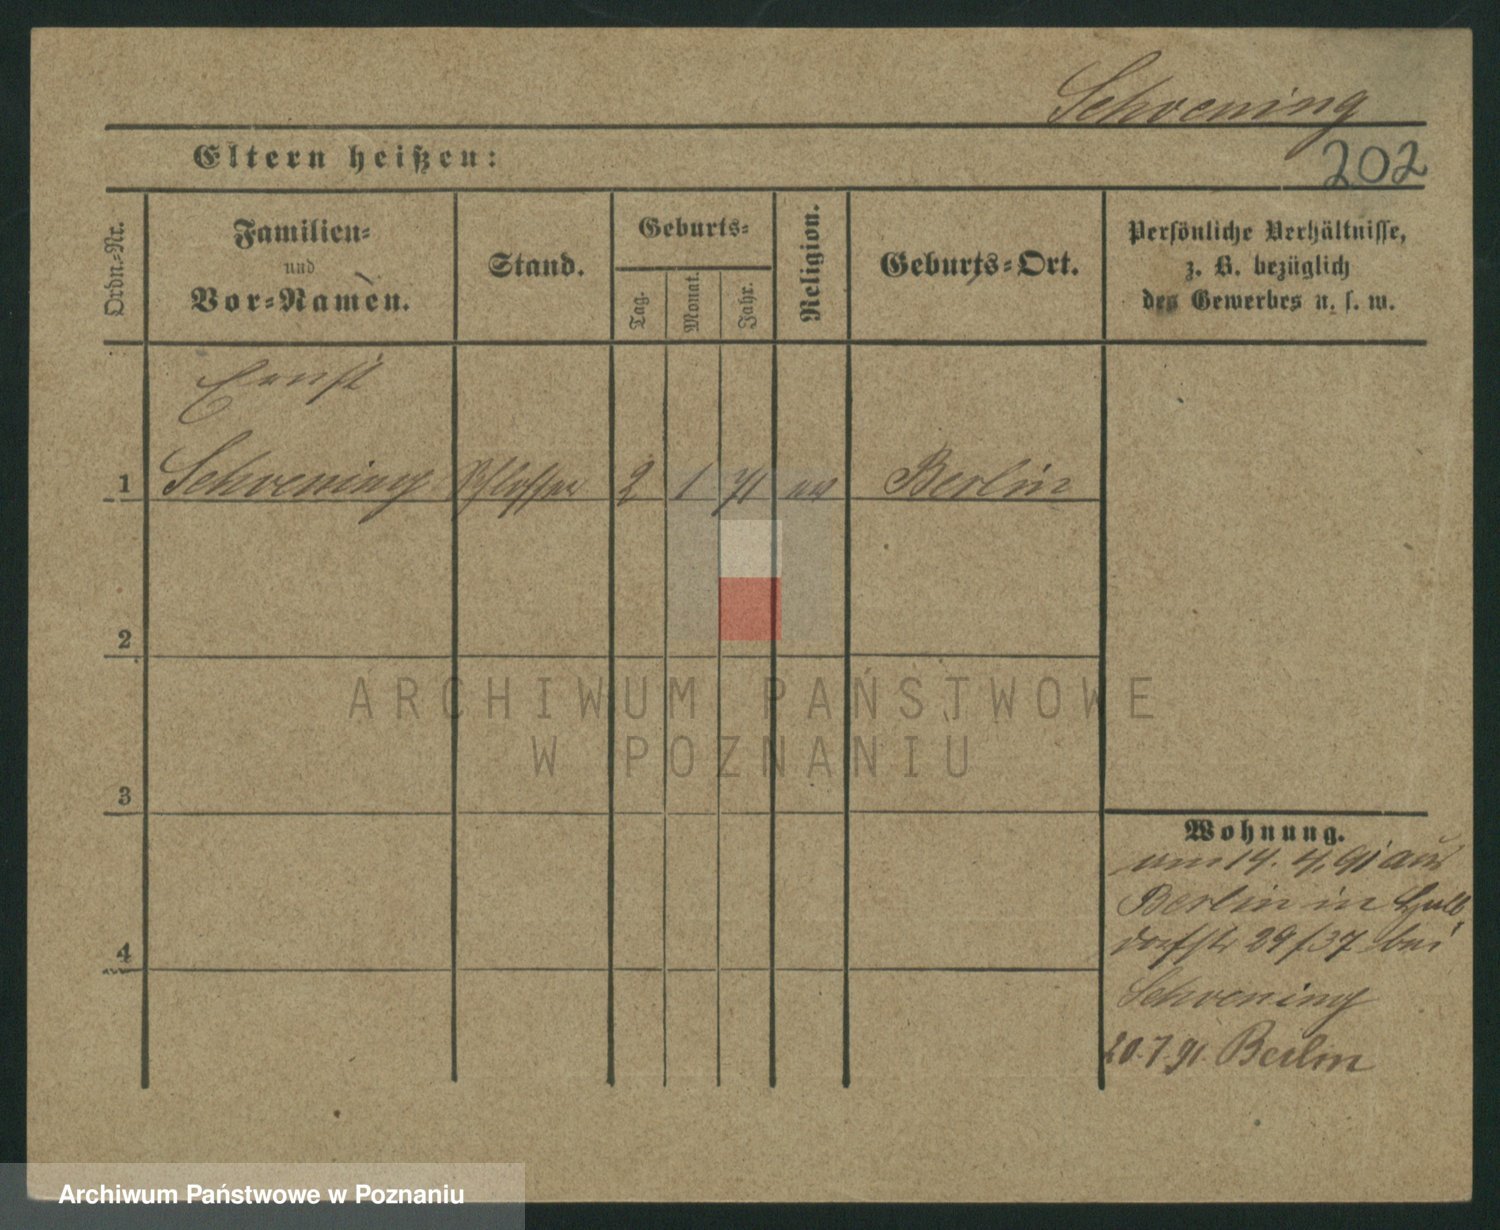 Schoening
202
Eltern heißen:
Ordn.-Nr.
Familien-
und
Vor-Namen.
Stand.
Geburts-
Tag.
Monat.
Jahr.
Religion.
Geburts-Ort.
Persönliche Verhältnisse,
z. B. bezüglich
des Gewerbes u. s. w.
Ernst
1 Schoening Schlosser 2 1 71 ev Berlin
2
3
4
Wohnung.
am 14. 4. 91 aus
Berlin in
dorfstr 29/37 bei
Schoening
20.7.91. Berlin
ARCHIWUM PAŃSTWOWE
W POZNANIU
Archiwum Państwowe w Poznaniu